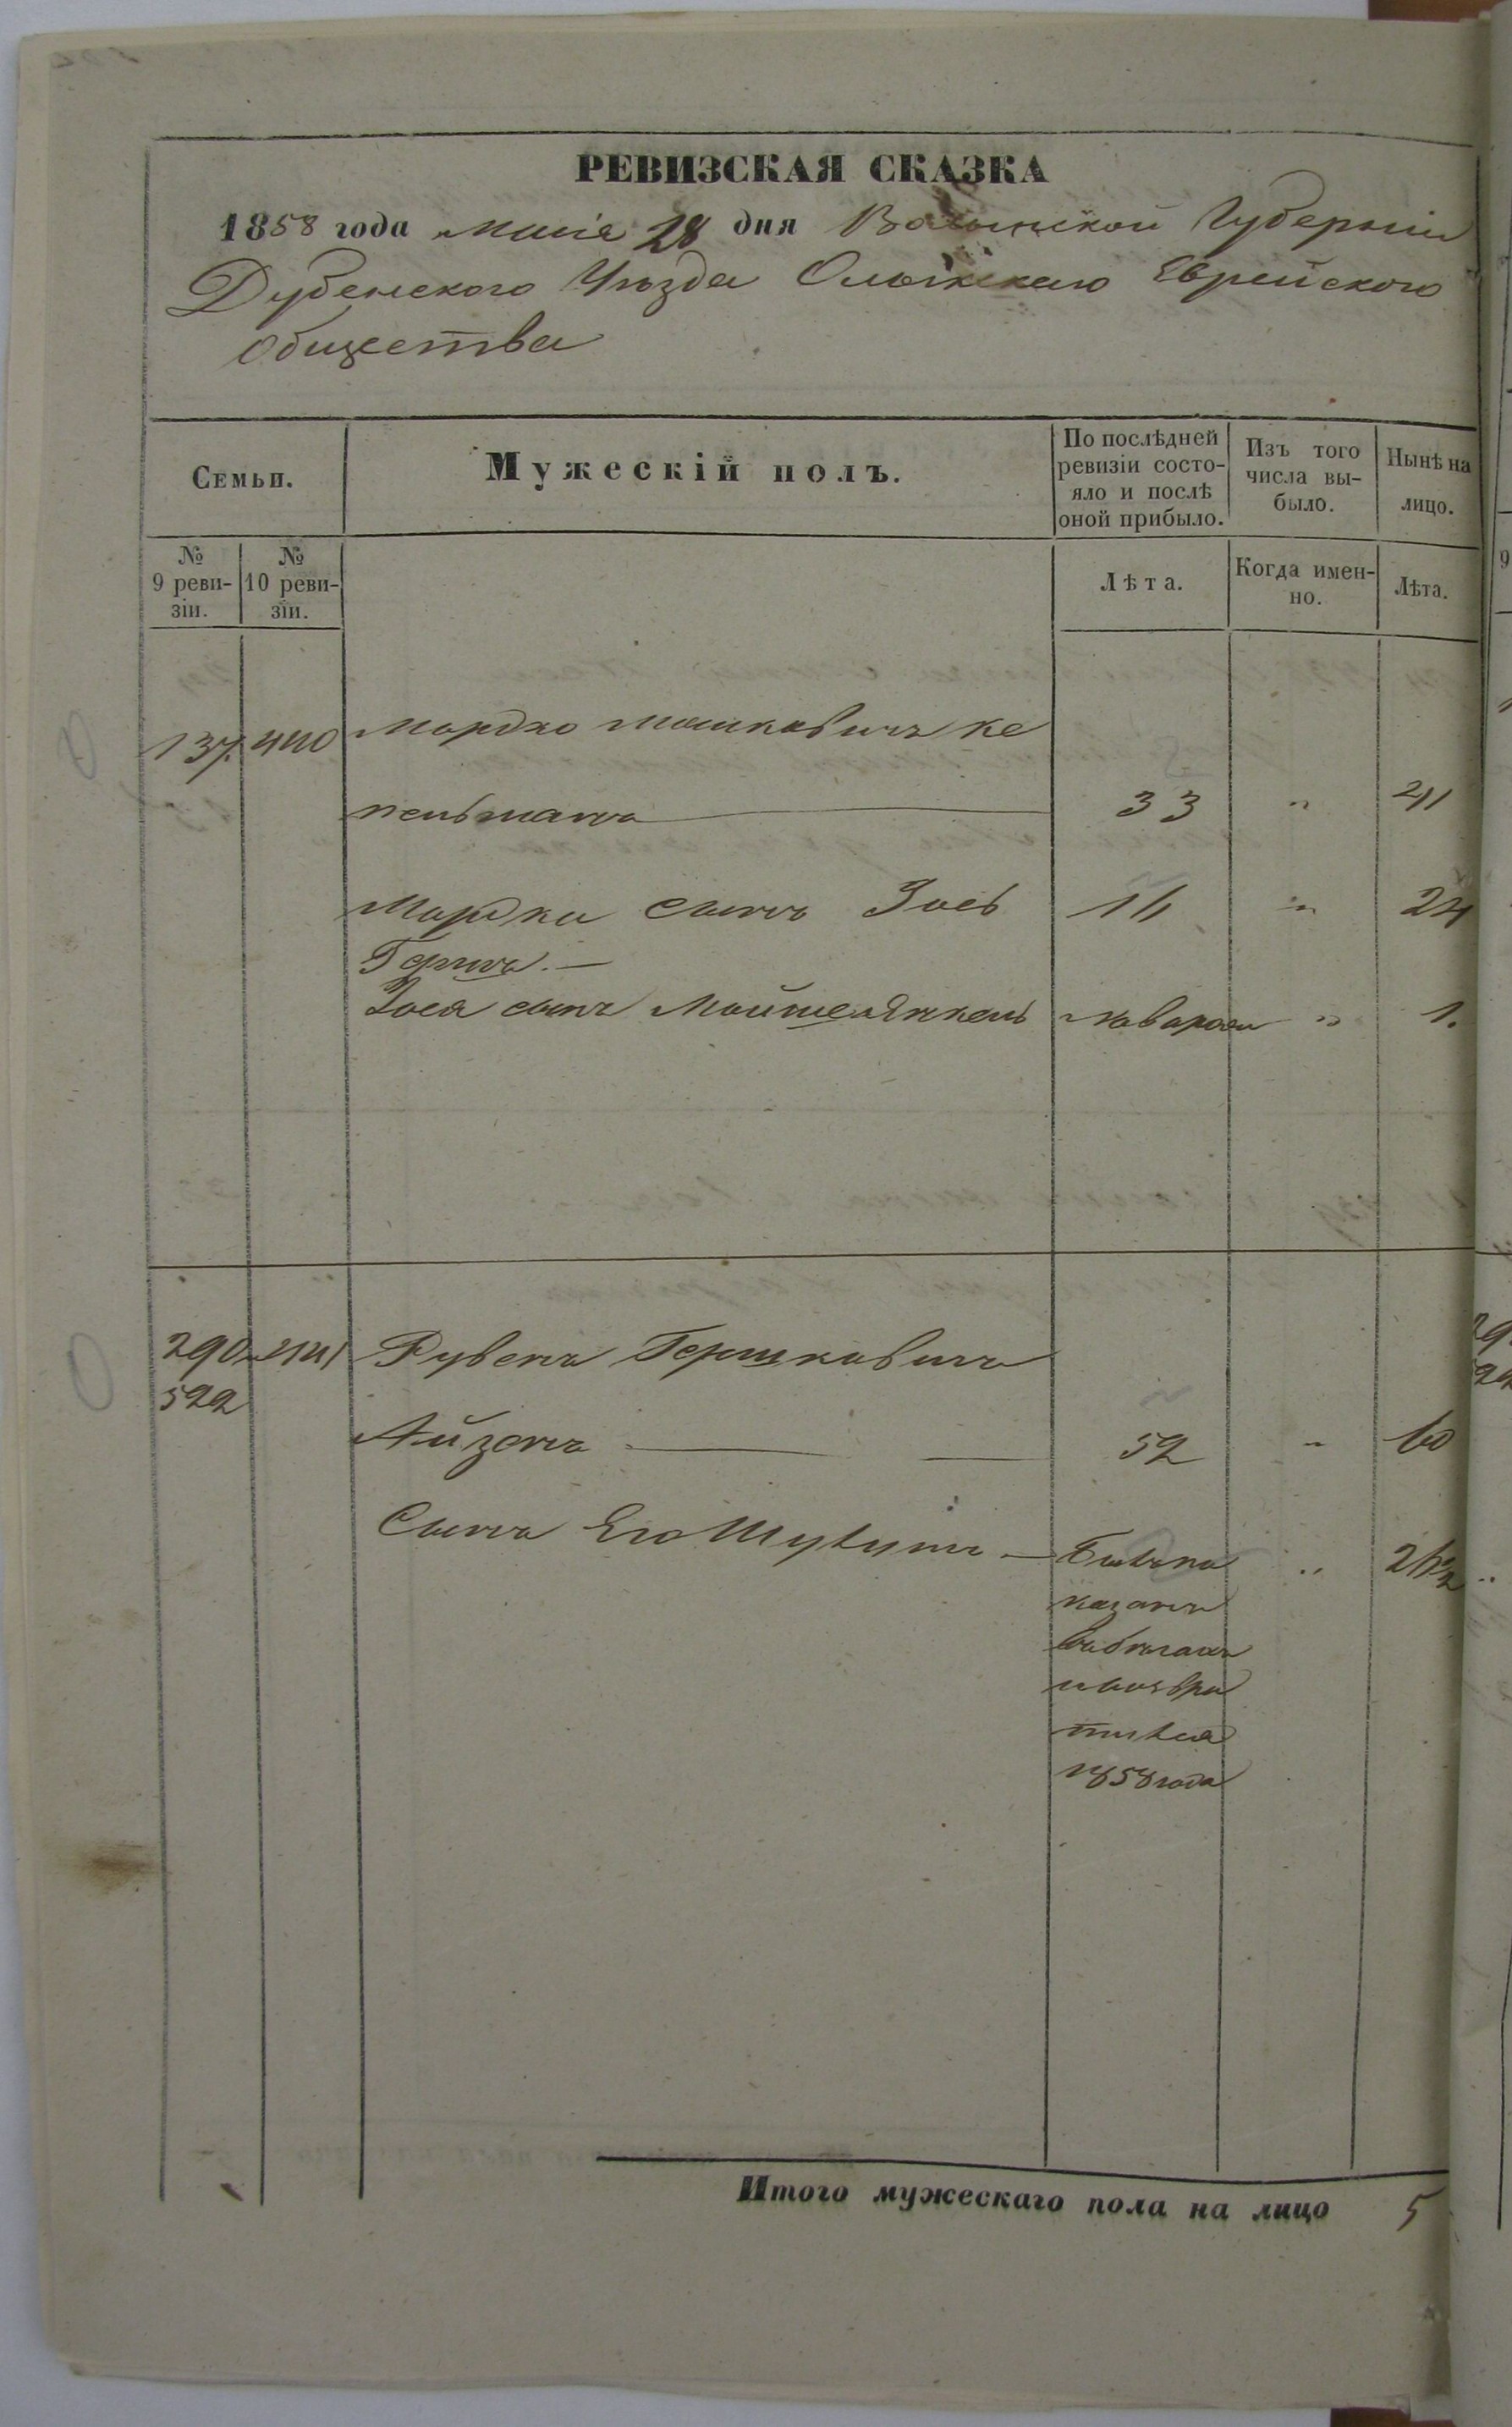 РЕВИЗСКАЯ СКАЗКА
1858 года маія 28 дня Волынской Губерніи
Дубенского Уѣзда Олыкскаго Еврейского
Общества
Семьи.
Мужескій полъ.
По послѣдней ревизіи состояло и послѣ оной прибыло.
Изъ того числа выбыло.
Нынѣ на лицо.
№ 9 ревизіи.
№ 10 ревизіи.
Лѣта.
Когда именно.
Лѣта.
137. 440 Мордко Мошковичъ Ке
пельманъ 33 " 41
Мордки сынъ Зось 16 " 24
Гершъ.
Зося сынъ Мойше Янкель новорож " 1.
290 441 Рувенъ Гершковичъ
522
Айзенъ 52 " 60
Сынъ Его
казанъ
1858 года
Итого мужескаго пола на лицо 5